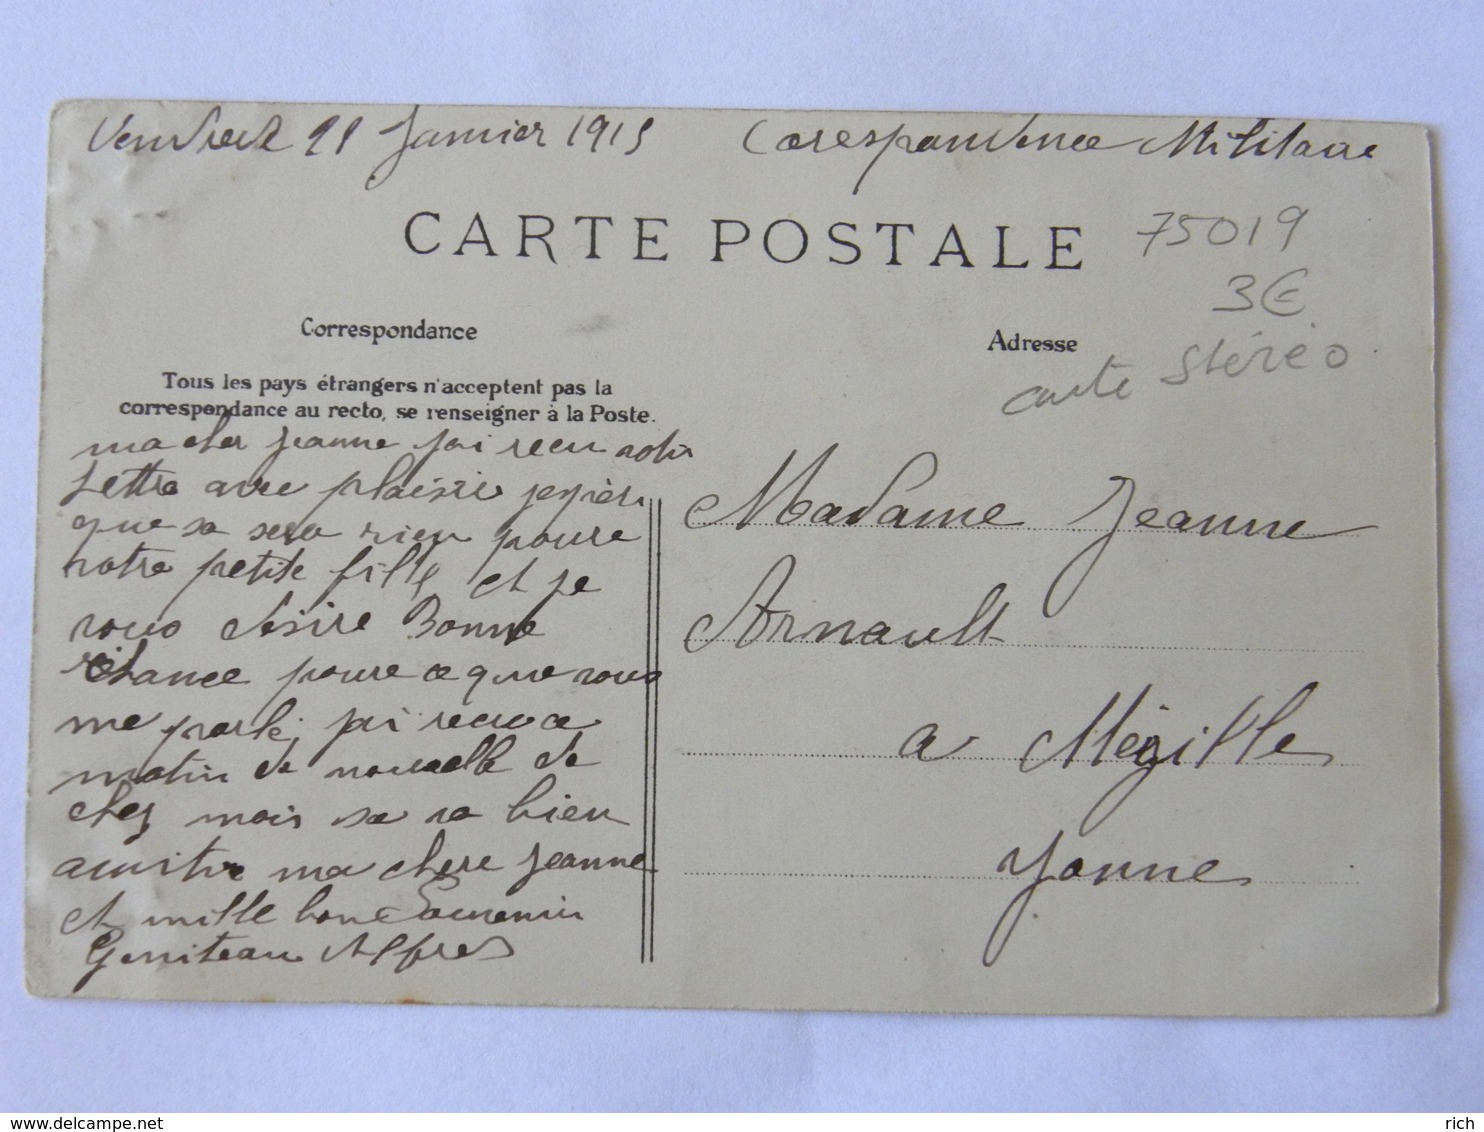 Vendredi 21 Janvier 1915 Corespondence Militaire
CARTE POSTALE
75019
3€
carte stéréo
Correspondance
Adresse
Tous les pays étrangers n'acceptent pas la
correspondance au recto, se renseigner à la Poste.
ma cher Jeanne jai recu votre
Lettre avec plaisire jespère
que sa sera rien poure
votre petite fille et je
vous désire Bonne
chance poure ce que vous
me parlé, jai recu ce
matin de nouvelle de
chez mois sa va bien
amitié ma chere Jeanne
et mille bon Souvenir
Geniteau Alfred
Madame Jeanne
Arnault
a Mézille
Yonne
delcampe.net
rich